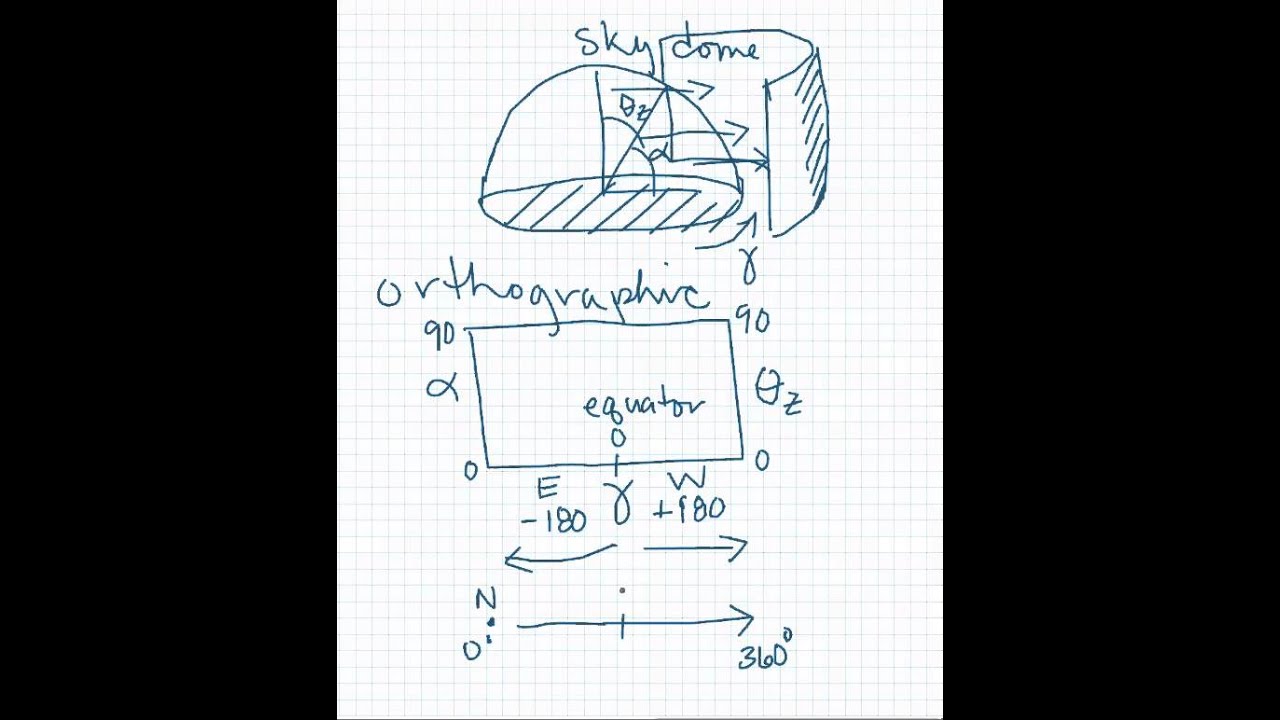 sky dome
θz
α
γ
orthographic
90 90
α θz
equator
0
0 0
E γ W
-180 +180
N
0° 360°